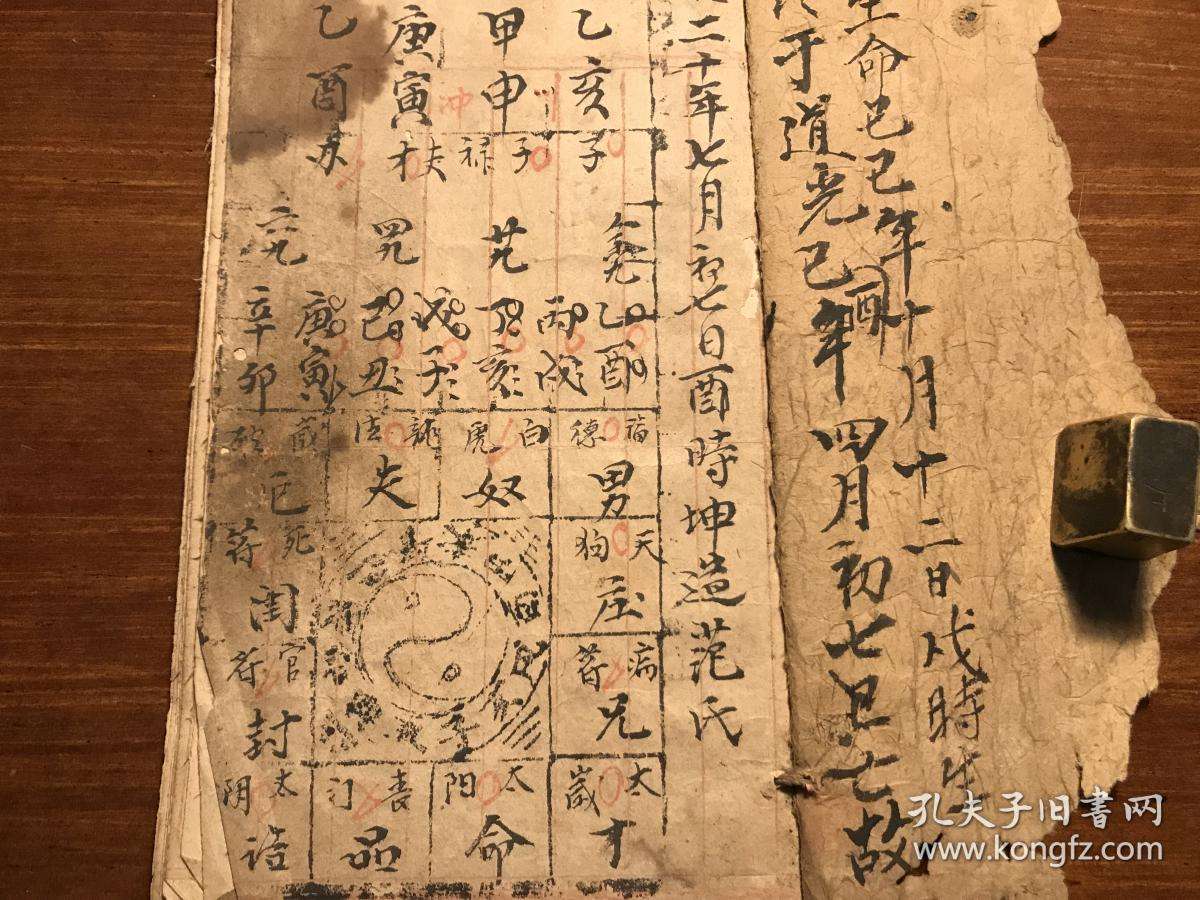 生命己巳年十月十二日戌時生
于道光己酉年四月初七日亡故
二十年七月初七日酉時坤造范氏
乙亥
甲申
庚寅
乙酉
冲
子
子
禄
才
乙酉
丙戌
丁亥
戊子
己丑
庚寅
辛卯
福德
白虎
龍
歲
男
奴
夫
天狗
死符
庄
閏
病符
官符
兄
封
太歲
太阳
喪门
太阴
才
命
品
诰
孔夫子旧书网
www.kongfz.com